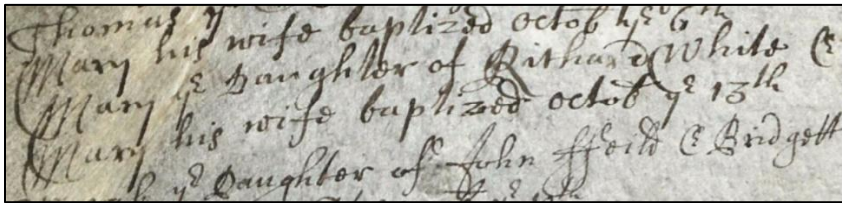 Thomas
Mary his wife baptized octob ye 6th
Mary ye Daughter of Richard White &
Mary his wife baptized octob ye 13th
ye Daughter of John ffeild & Bridgett